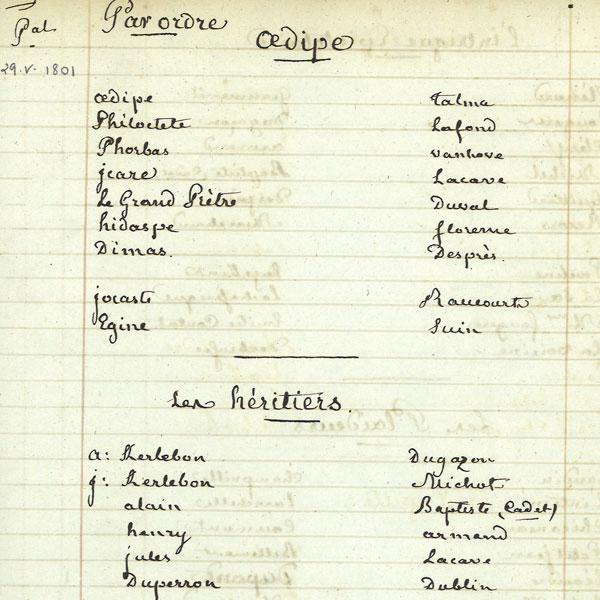 Pal.
29.V. 1801
Par ordre
œdipe
œdipe Talma
Philoctete Lafond
Phorbas vanhove
jcare Lacave
Le Grand Prètre Duval
hidaspe florence
Dimas. Desprès.
jocaste Raucourt
Egine Suin
Les héritiers.
a: Kerlebon Dugazon
j: Kerlebon Michot
alain Baptiste (Cadet)
henry armand
jules Lacave
Duperron Dublin